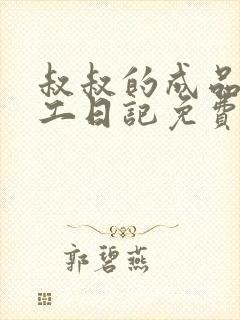 叔叔的成品
工日记免费
郭碧燕